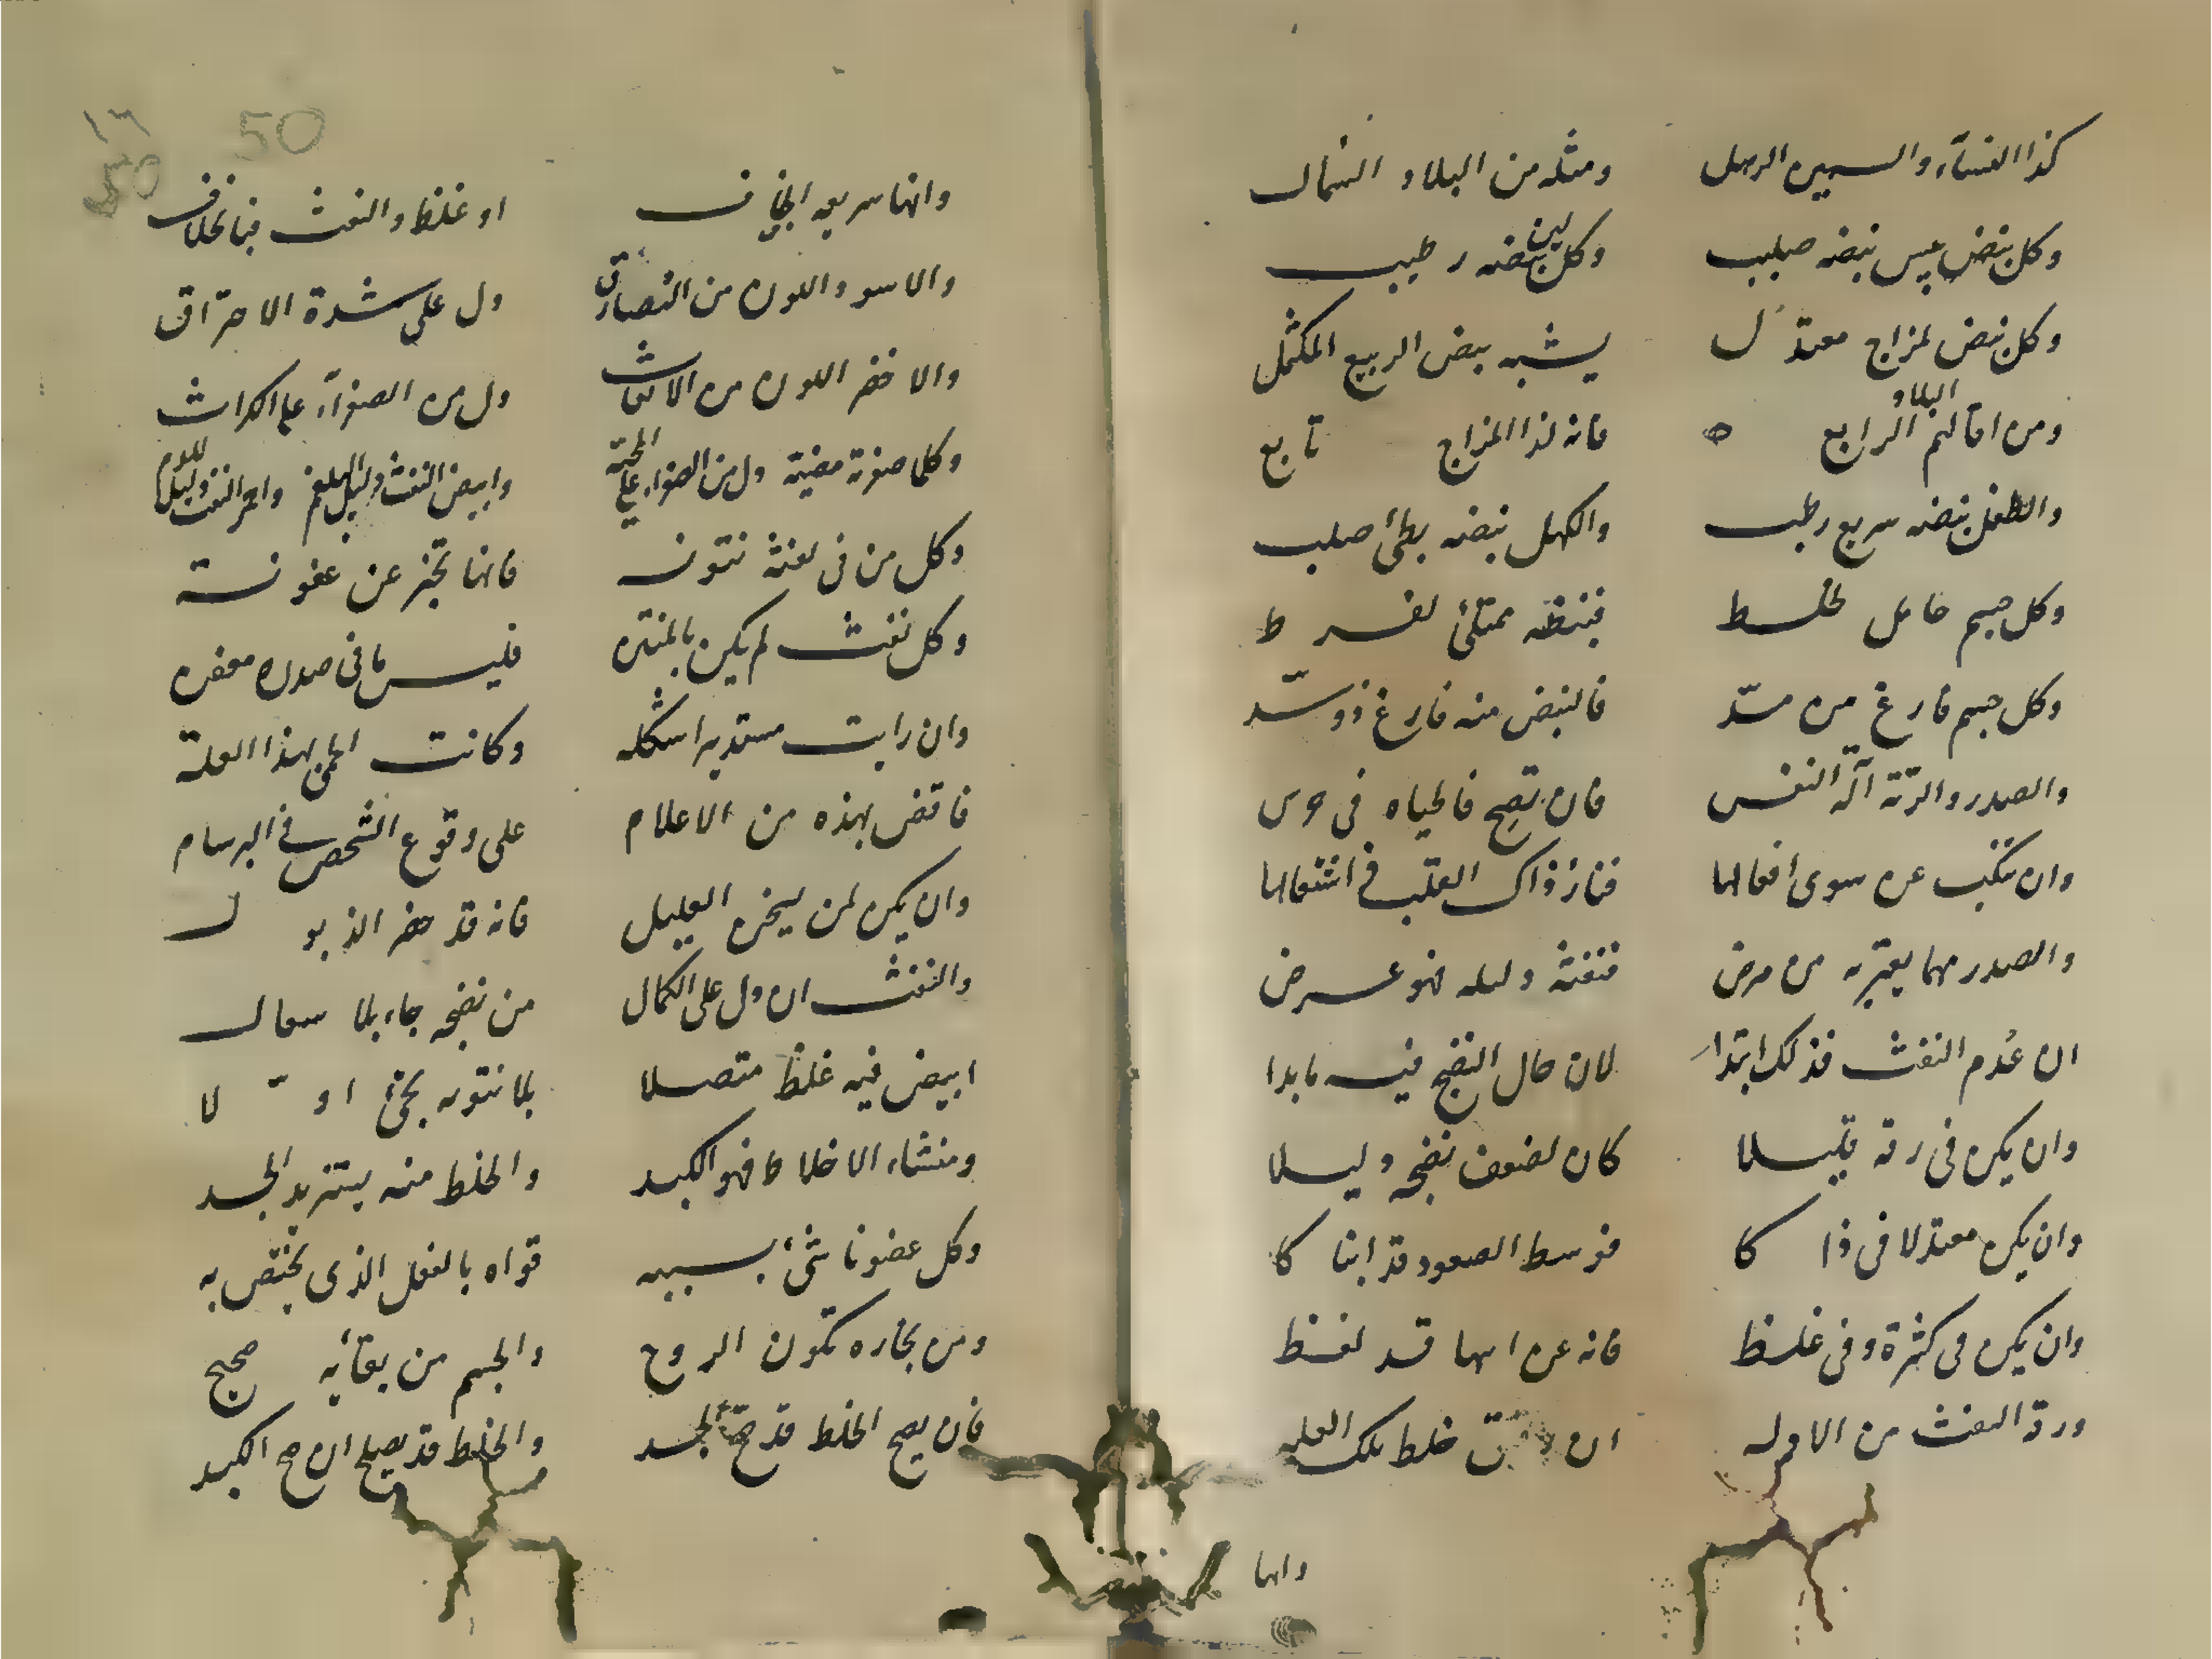 كذا النساء والسمين الرهل ومثله من البلاد الشمال
وكل نبض يبس نبضه صليب وكل لين نبضه رطيب
وكل نبض لمزاج معتدل يشبه نبض الربيع المكتمل
ومن اقاليم البلاد الرابع ه فانه لذا المزاج تابع
والطفل نبضه سريع رطب والكهل نبضه بطئ صلب
وكل جسم حامل لخلط فنبضه ممتلئ لفرط
وكل جسم فارغ من سدّ فالنبض منه فارغ ذو سدّ
والصدر والرئة آلة النفس فان تصح فالحياه فى حرس
وان تنكب عن سوى افعالها فنار ذاك القلب فى اشتعالها
والصدر مهما يعتريه من مرض فنفثه دليله فهو عرض
ان عُدم النفث فذلك ابتداء لان حال النضج فيه ما بدا
وان يكن فى رقة قليلا كان لضعف نضجه دليلا
وان يكن معتدلا فى ذا كا فوسط الصعود قد ابنا كا
وان يكن فى كثرة وفى غلظ فانه عن انتها قد لفظ
ورقة النفث من الادله ان خلط تلك العله
وانها
50
وانها سريعه او غلظ والنفث بخلاف
والاسود اللون من دل على شدة الاحتراق
والاخضر اللون من دل من الصفراء على الكراث
وكلما صفرته مضيئة دل من الصفراء على المحيه وابيض النفث دليل البلغم واحمر النفث دليل للدم
وكل من فى نفثه نتونه فانها تخبر عن عفونته
وكل نفث لم يكن بالمنتن فليس ما فى صدره معفن
وان رايت مستديرا شكله وكانت الحمى بهذا العلة
فاقض بهذه من الاعلام على وقوع الشخص فى البرسام
وان يكن لمن يسخن العليل فانه قد حضر الذبول
والنفث ان دل على الكمال من نضجه جاء بلا سعال
ابيض فيه غلظ متصلا بلا نتونه يجئ اوّ لا
ومنشاء الاخلاط فهو الكبد والخلط منه يستزيد الجسد
وكل عضو ناشئ بسببه قواه بالفعل الذى يختص به
ومن بخاره تكون الروح والجسم من بقائه صحيح
فان يصح الخلط قد صح الجسد والخلط قد يصلح ان صح الكبد